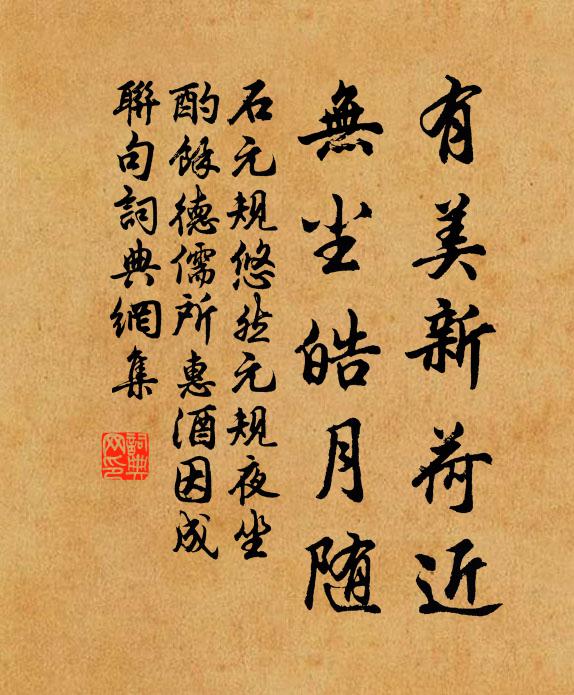 有美新荷近
無尘皓月随
石元規悠然元規夜坐
酌餘德儒所惠酒因成
聯句詞典網集
詞典网印